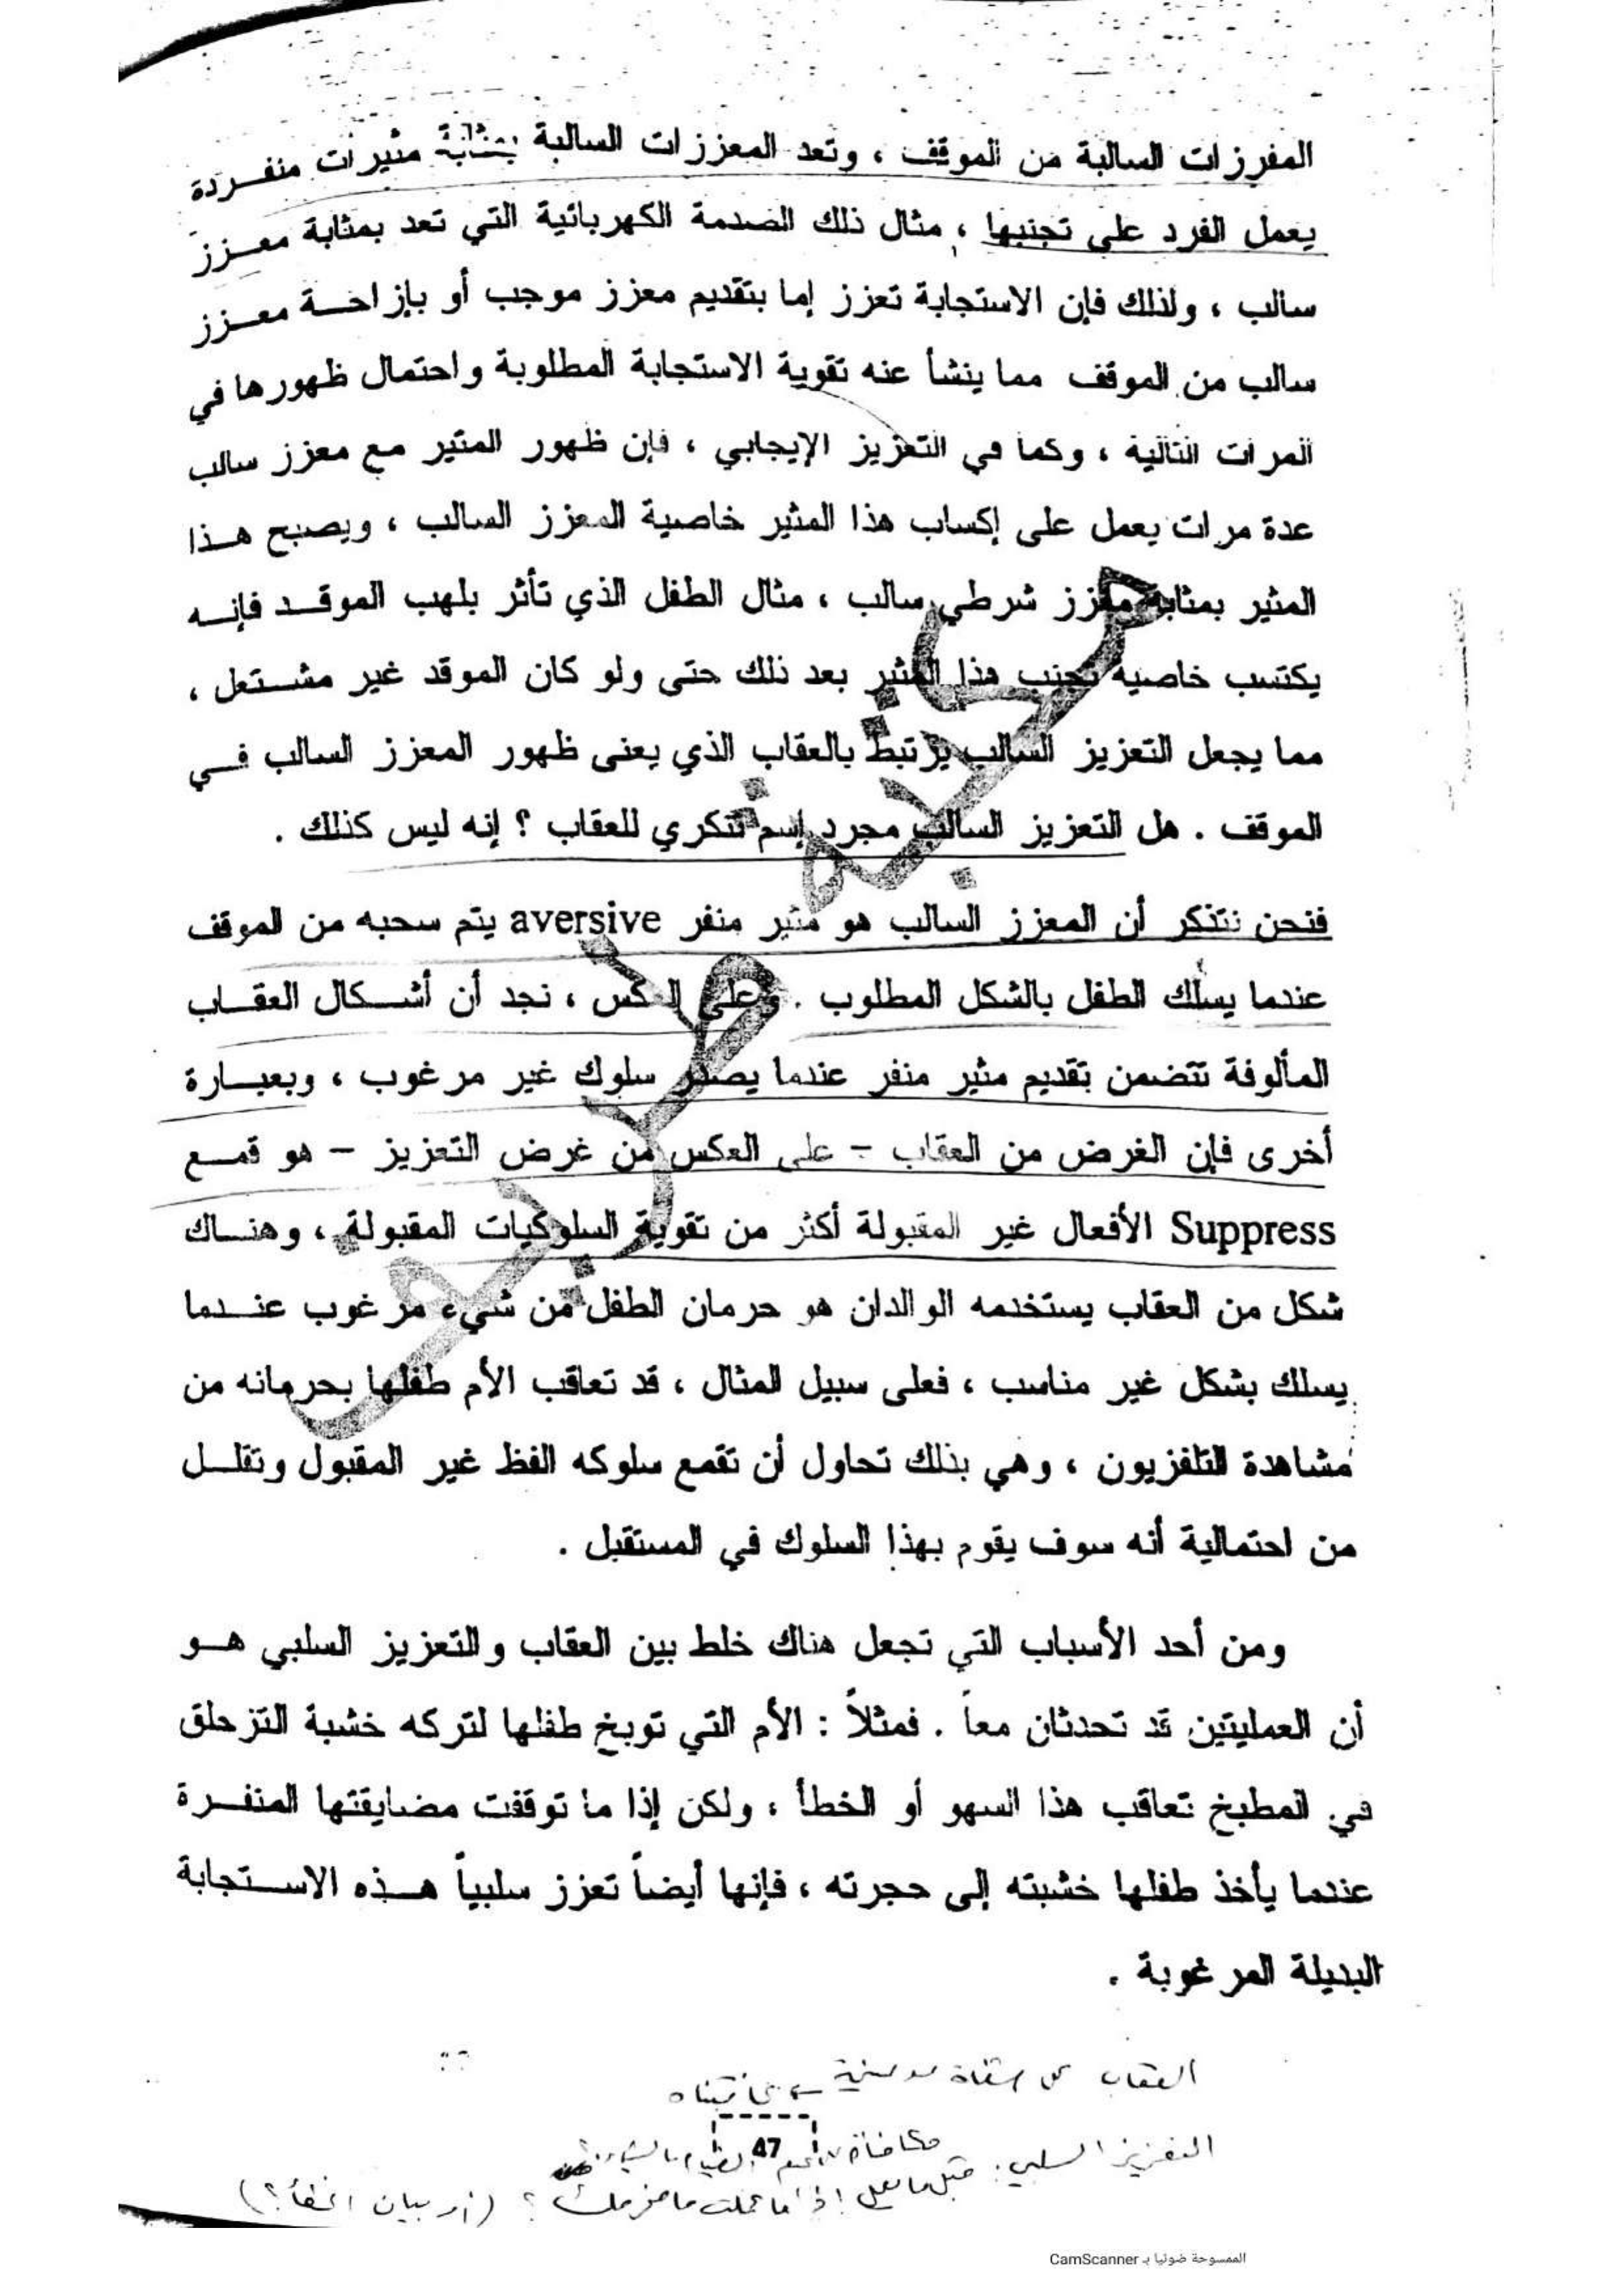 المفرزات السالبة من الموقف ، وتعد المعززات السالبة بمثابة مثيرات منفردة
يعمل الفرد على تجنبها ، مثال ذلك الصدمة الكهربائية التي تعد بمثابة معزز
سالب ، ولذلك فإن الاستجابة تعزز إما بتقديم معزز موجب أو بإزاحة معزز
سالب من الموقف مما ينشأ عنه تقوية الاستجابة المطلوبة واحتمال ظهورها في
المرات التالية ، وكما في التعزيز الإيجابي ، فإن ظهور المثير مع معزز سالب
عدة مرات يعمل على إكساب هذا المثير خاصية المعزز السالب ، ويصبح هذا
المثير بمثابة معزز شرطي سالب ، مثال الطفل الذي تأثر بلهب الموقد فإنه
يكتسب خاصية تجنب هذا المثير بعد ذلك حتى ولو كان الموقد غير مشتعل ،
مما يجعل التعزيز السالب يرتبط بالعقاب الذي يعنى ظهور المعزز السالب في
الموقف . هل التعزيز السالب مجرد إسم تنكري للعقاب ؟ إنه ليس كذلك .
فنحن نتذكر أن المعزز السالب هو مثير منفر aversive يتم سحبه من الموقف
عندما يسلك الطفل بالشكل المطلوب . وعلى العكس ، نجد أن أشكال العقاب
المألوفة تتضمن بتقديم مثير منفر عندما يصدر سلوك غير مرغوب ، وبعبارة
أخرى فإن الغرض من العقاب – على العكس من غرض التعزيز – هو قمع
Suppress الأفعال غير المقبولة أكثر من تقوية السلوكيات المقبولة ، وهناك
شكل من العقاب يستخدمه الوالدان هو حرمان الطفل من شيء مرغوب عندما
يسلك بشكل غير مناسب ، فعلى سبيل المثال ، قد تعاقب الأم طفلها بحرمانه من
مشاهدة التلفزيون ، وهي بذلك تحاول أن تقمع سلوكه الفظ غير المقبول وتقلل
من احتمالية أنه سوف يقوم بهذا السلوك في المستقبل .
ومن أحد الأسباب التي تجعل هناك خلط بين العقاب والتعزيز السلبي هو
أن العمليتين قد تحدثان معاً . فمثلاً : الأم التي توبخ طفلها لتركه خشبة التزحلق
في المطبخ تعاقب هذا السهو أو الخطأ ، ولكن إذا ما توقفت مضايقتها المنفرة
عندما يأخذ طفلها خشبته إلى حجرته ، فإنها أيضاً تعزز سلبياً هذه الاستجابة
البديلة المرغوبة .
العقاب
47
التعزيز السلبي :
الممسوحة ضوئيا بـ CamScanner